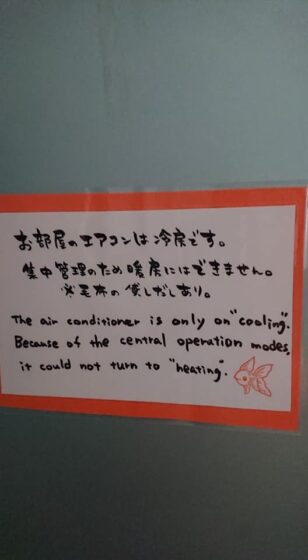 お部屋のエアコンは冷房です。
集中管理のため暖房にはできません。
※毛布の貸しだしあり。
The air conditioner is only on "cooling".
Because of the central operation modes,
it could not turn to "heating".